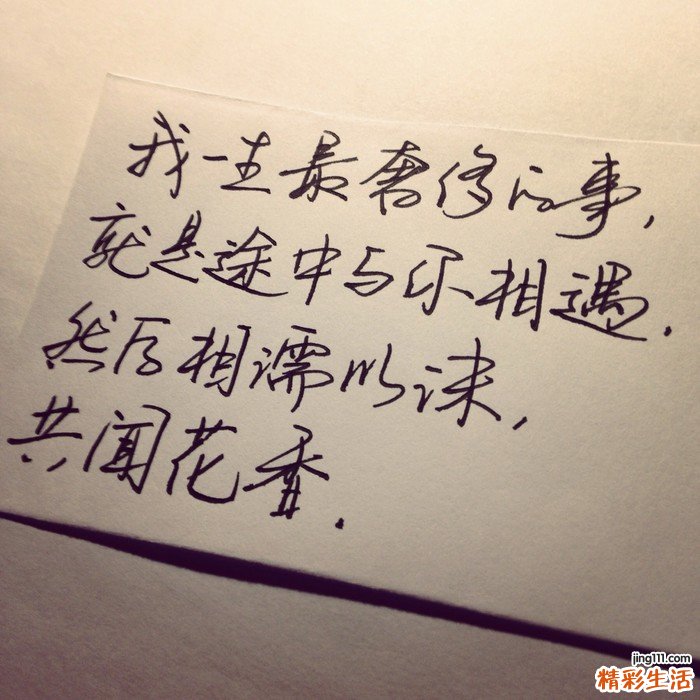 我一生最奢侈的事,
就是途中与你相遇.
然后相濡以沫,
共闻花香.
jing111.com
精彩生活